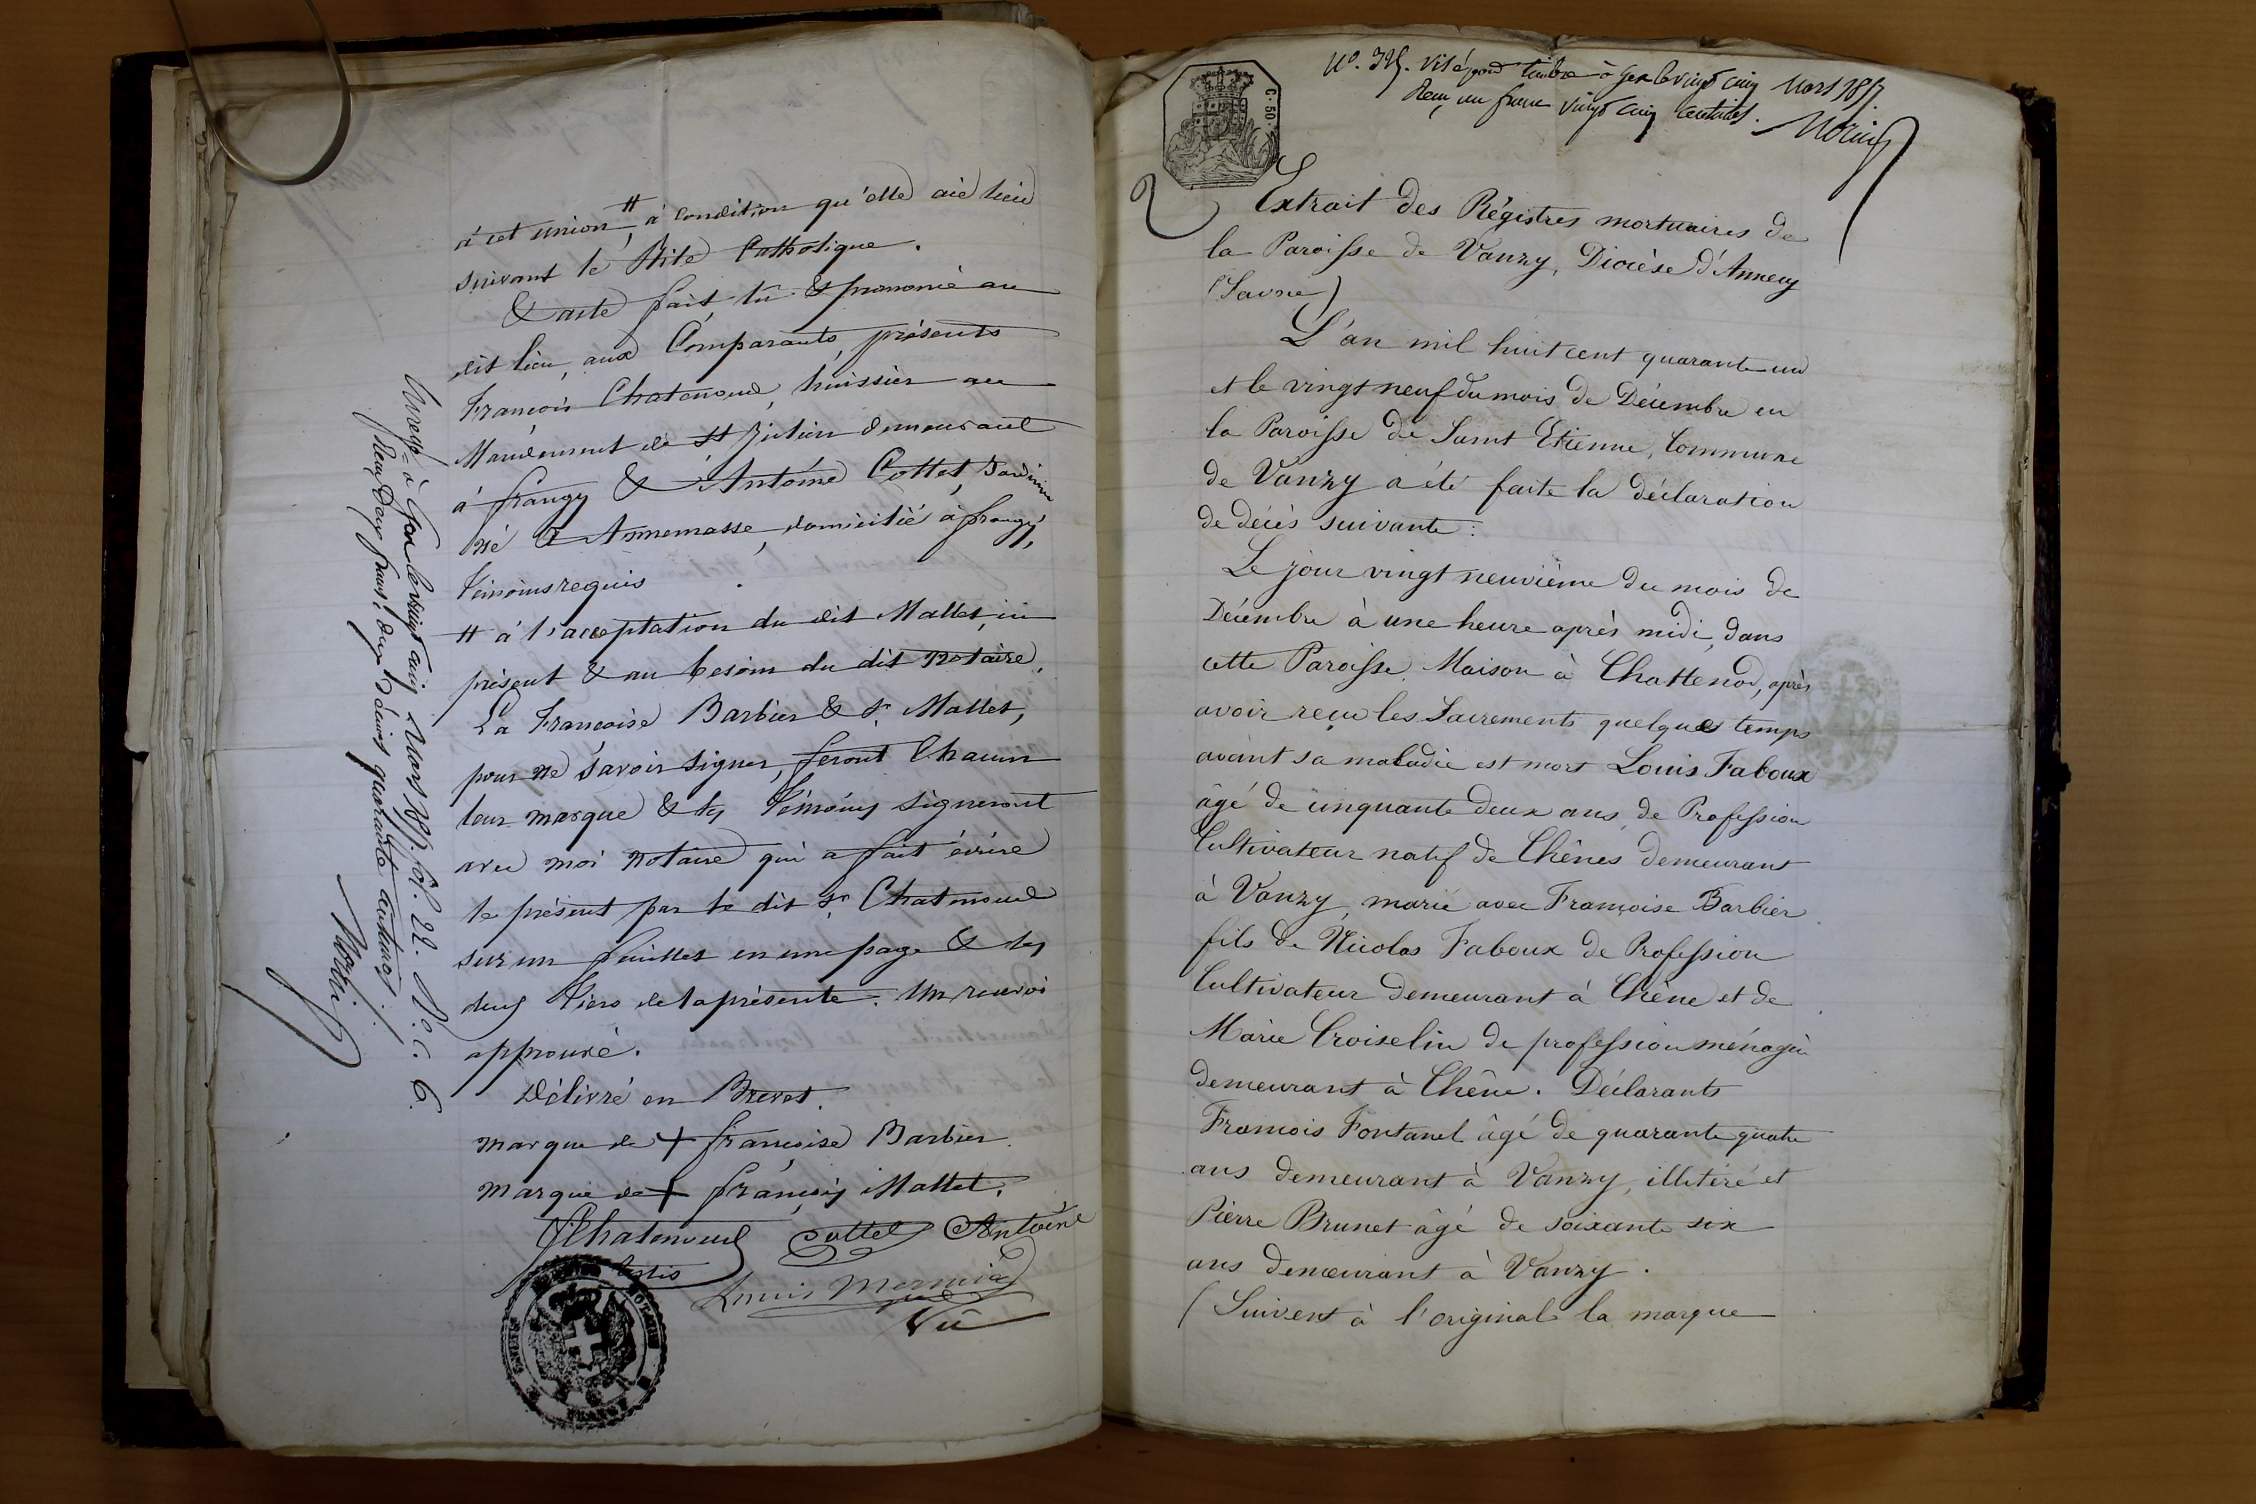 à cet union, # à condition qu'elle aie lieu
suivant le Rite Catholique.
& acte fait, lu & prononcé au
dit lieu, aux Comparants, présents
François Chatenoud, huissier au
Mandement de St Julien demeurant
à frangy & Antoine Cottet, Jardinier
né à Annemasse, domicilié à frangy,
témoins requis
# à l'acceptation du dit Mallet, ici
présent & au besoin du dit notaire.
La Francoise Barbier & Sr Mallet,
pour ne savoir signer, feront Chacun
leur marque & les témoins signeront
avec moi notaire qui a fait écrire
le présent par le dit Sr Chatenoud
sur un feuillet en une page & les
deux tiers de la présente. Un renvoi
approuvé.
Délivré en Brevet.
marque de + françoise Barbier
marque de + françois Mallet.
Chatenoud Cottet Antoine
Louis
Vû
à Gex le vingt cinq Mars 
Reçu deux francs, deux décimes quarante centimes.
Morin
Nº. Visé pour timbre à Gex le vingt cinq Mars 1857.
Reçu un franc vingt cinq centimes.
Morin
C. 50
Extrait des Régistres mortuaires de
la Paroisse de Vanzy, Diocèse d'Annecy
(Savoie)
L'an mil huit cent quarante un
et le vingt neuf du mois de Décembre en
la Paroisse de Saint Etienne, Commune
de Vanzy a été faite la déclaration
de décès suivante :
Le jour vingt neuvième du mois de
Décembre à une heure après midi, dans
cette Paroisse. Maison à Chattenod, après
avoir reçu les Sacrements quelques temps
avant sa maladie est mort Louis Faboux
âgé de cinquante deux ans, de Profession
Cultivateur natif de Chênes demeurant
à Vanzy, marié avec Françoise Barbier
fils de Nicolas Faboux de Profession
Cultivateur demeurant à Chêne et de
Marie Croiselin de profession ménagère
demeurant à Chêne. Déclarants
François Fontanel âgé de quarante quatre
ans demeurant à Vanzy, illetéré et
Pierre Brunet âgé de soixante six
ans demeurant à Vanzy.
(Suivent à l'original la marque